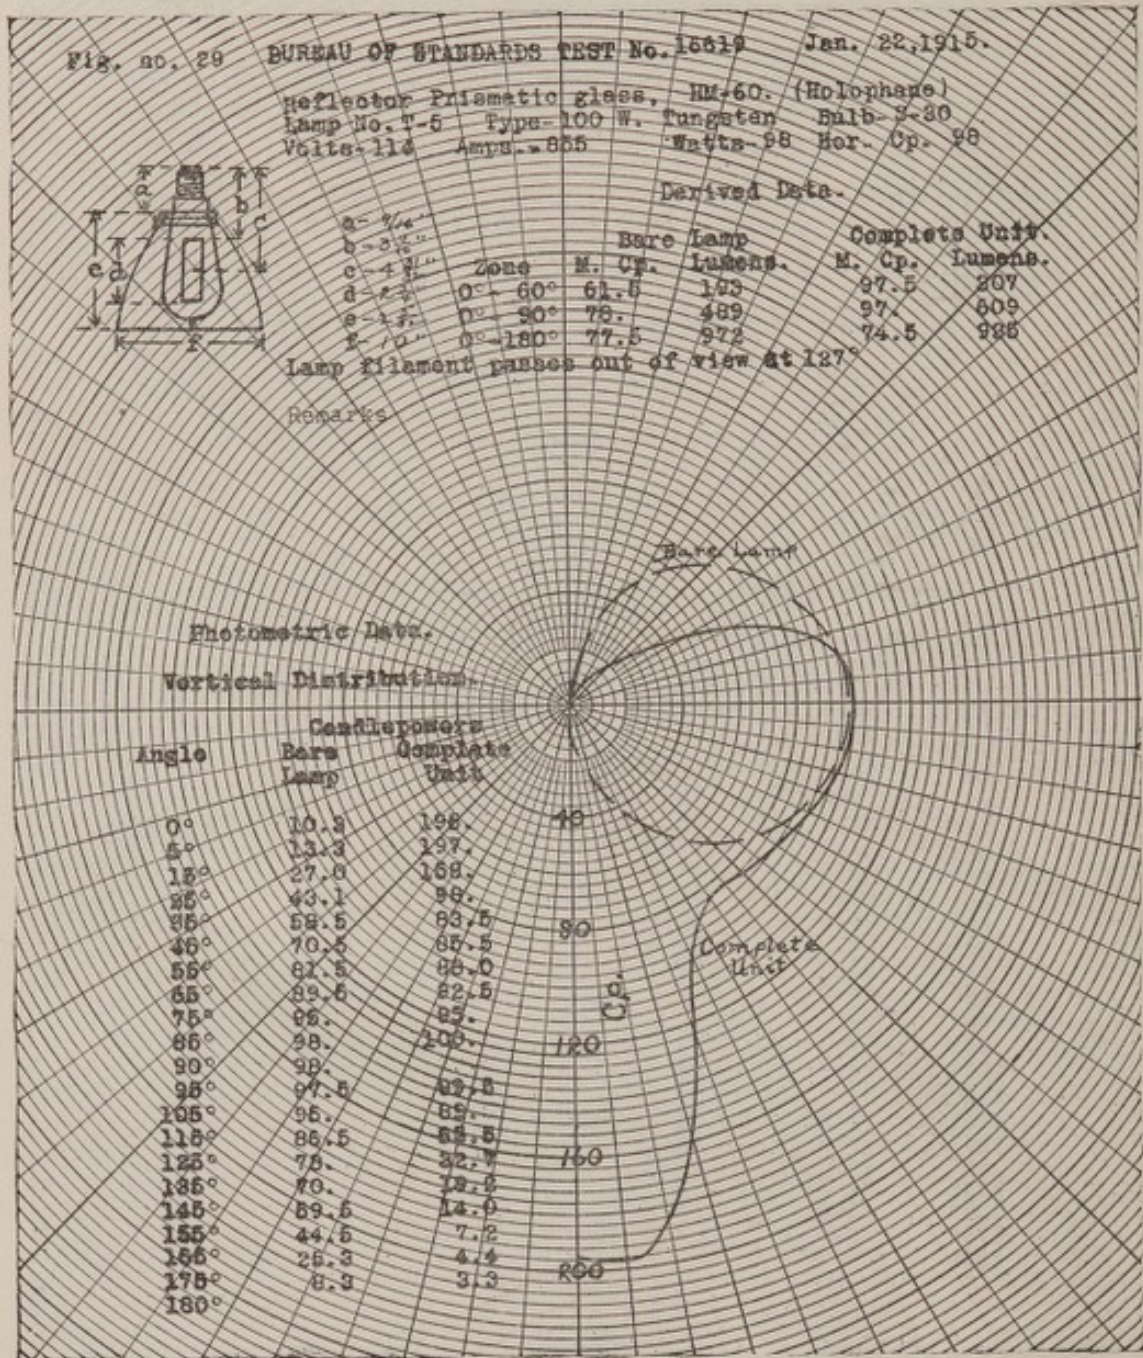 Fig. no. 29 BUREAU OF STANDARDS TEST No. 15619 Jan. 22, 1915.
Reflector Prismatic glass, HM-60. (Holophane)
Lamp No. T-5 Type-100 W. Tungsten Bulb S-30
Volts-113 Amps.-.855 Watts-98 Hor. Cp. 98
Derived Data.
a b c d e f
a-
b-
c-
d-
e-
f-10"
Bare Lamp Complete Unit.
Zone M. Cp. Lumens. M. Cp. Lumens.
0°- 60° 61.5 193 97.5 307
0°- 90° 78. 489 97. 609
0°-180° 77.5 972 74.5 935
Lamp filament passes out of view at 127°
Remarks
Bare Lamp
Photometric Data.
Vertical Distribution.
Candlepowers
Angle Bare Complete
Lamp Unit
0° 10.3 198.
5° 13.3 197.
15° 27.0 168.
25° 43.1 98.
35° 58.5 83.5
45° 70.5 85.5
55° 81.5 88.0
65° 89.5 92.5
75° 95. 95.
85° 98. 100.
90° 98.
95° 97.5 99.5
105° 95. 89.
115° 86.5
125° 78. 32.7
135° 70.
145° 59.5 14.0
155° 44.5 7.2
165° 26.3 4.4
175° 8.3 3.3
180°
40
80
Complete
Unit
Cp.
120
160
200